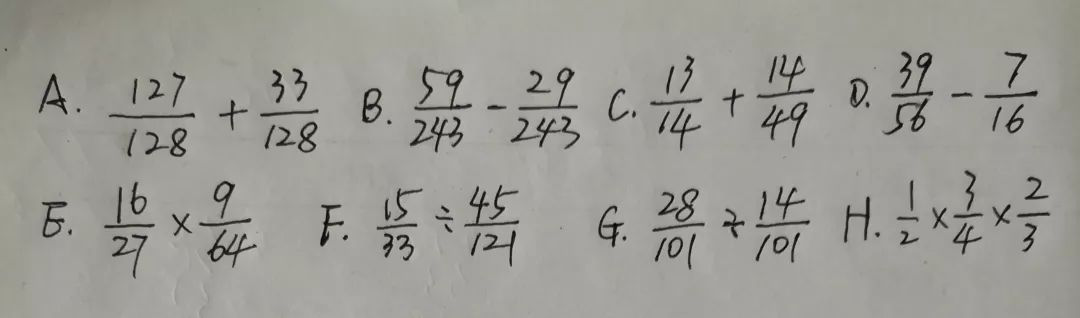 A. 127/128 + 33/128 B. 59/243 - 29/243 C. 13/14 + 14/49 D. 39/56 - 7/16
E. 16/27 × 9/64 F. 15/33 ÷ 45/121 G. 28/101 ÷ 14/101 H. 1/2 × 3/4 × 2/3